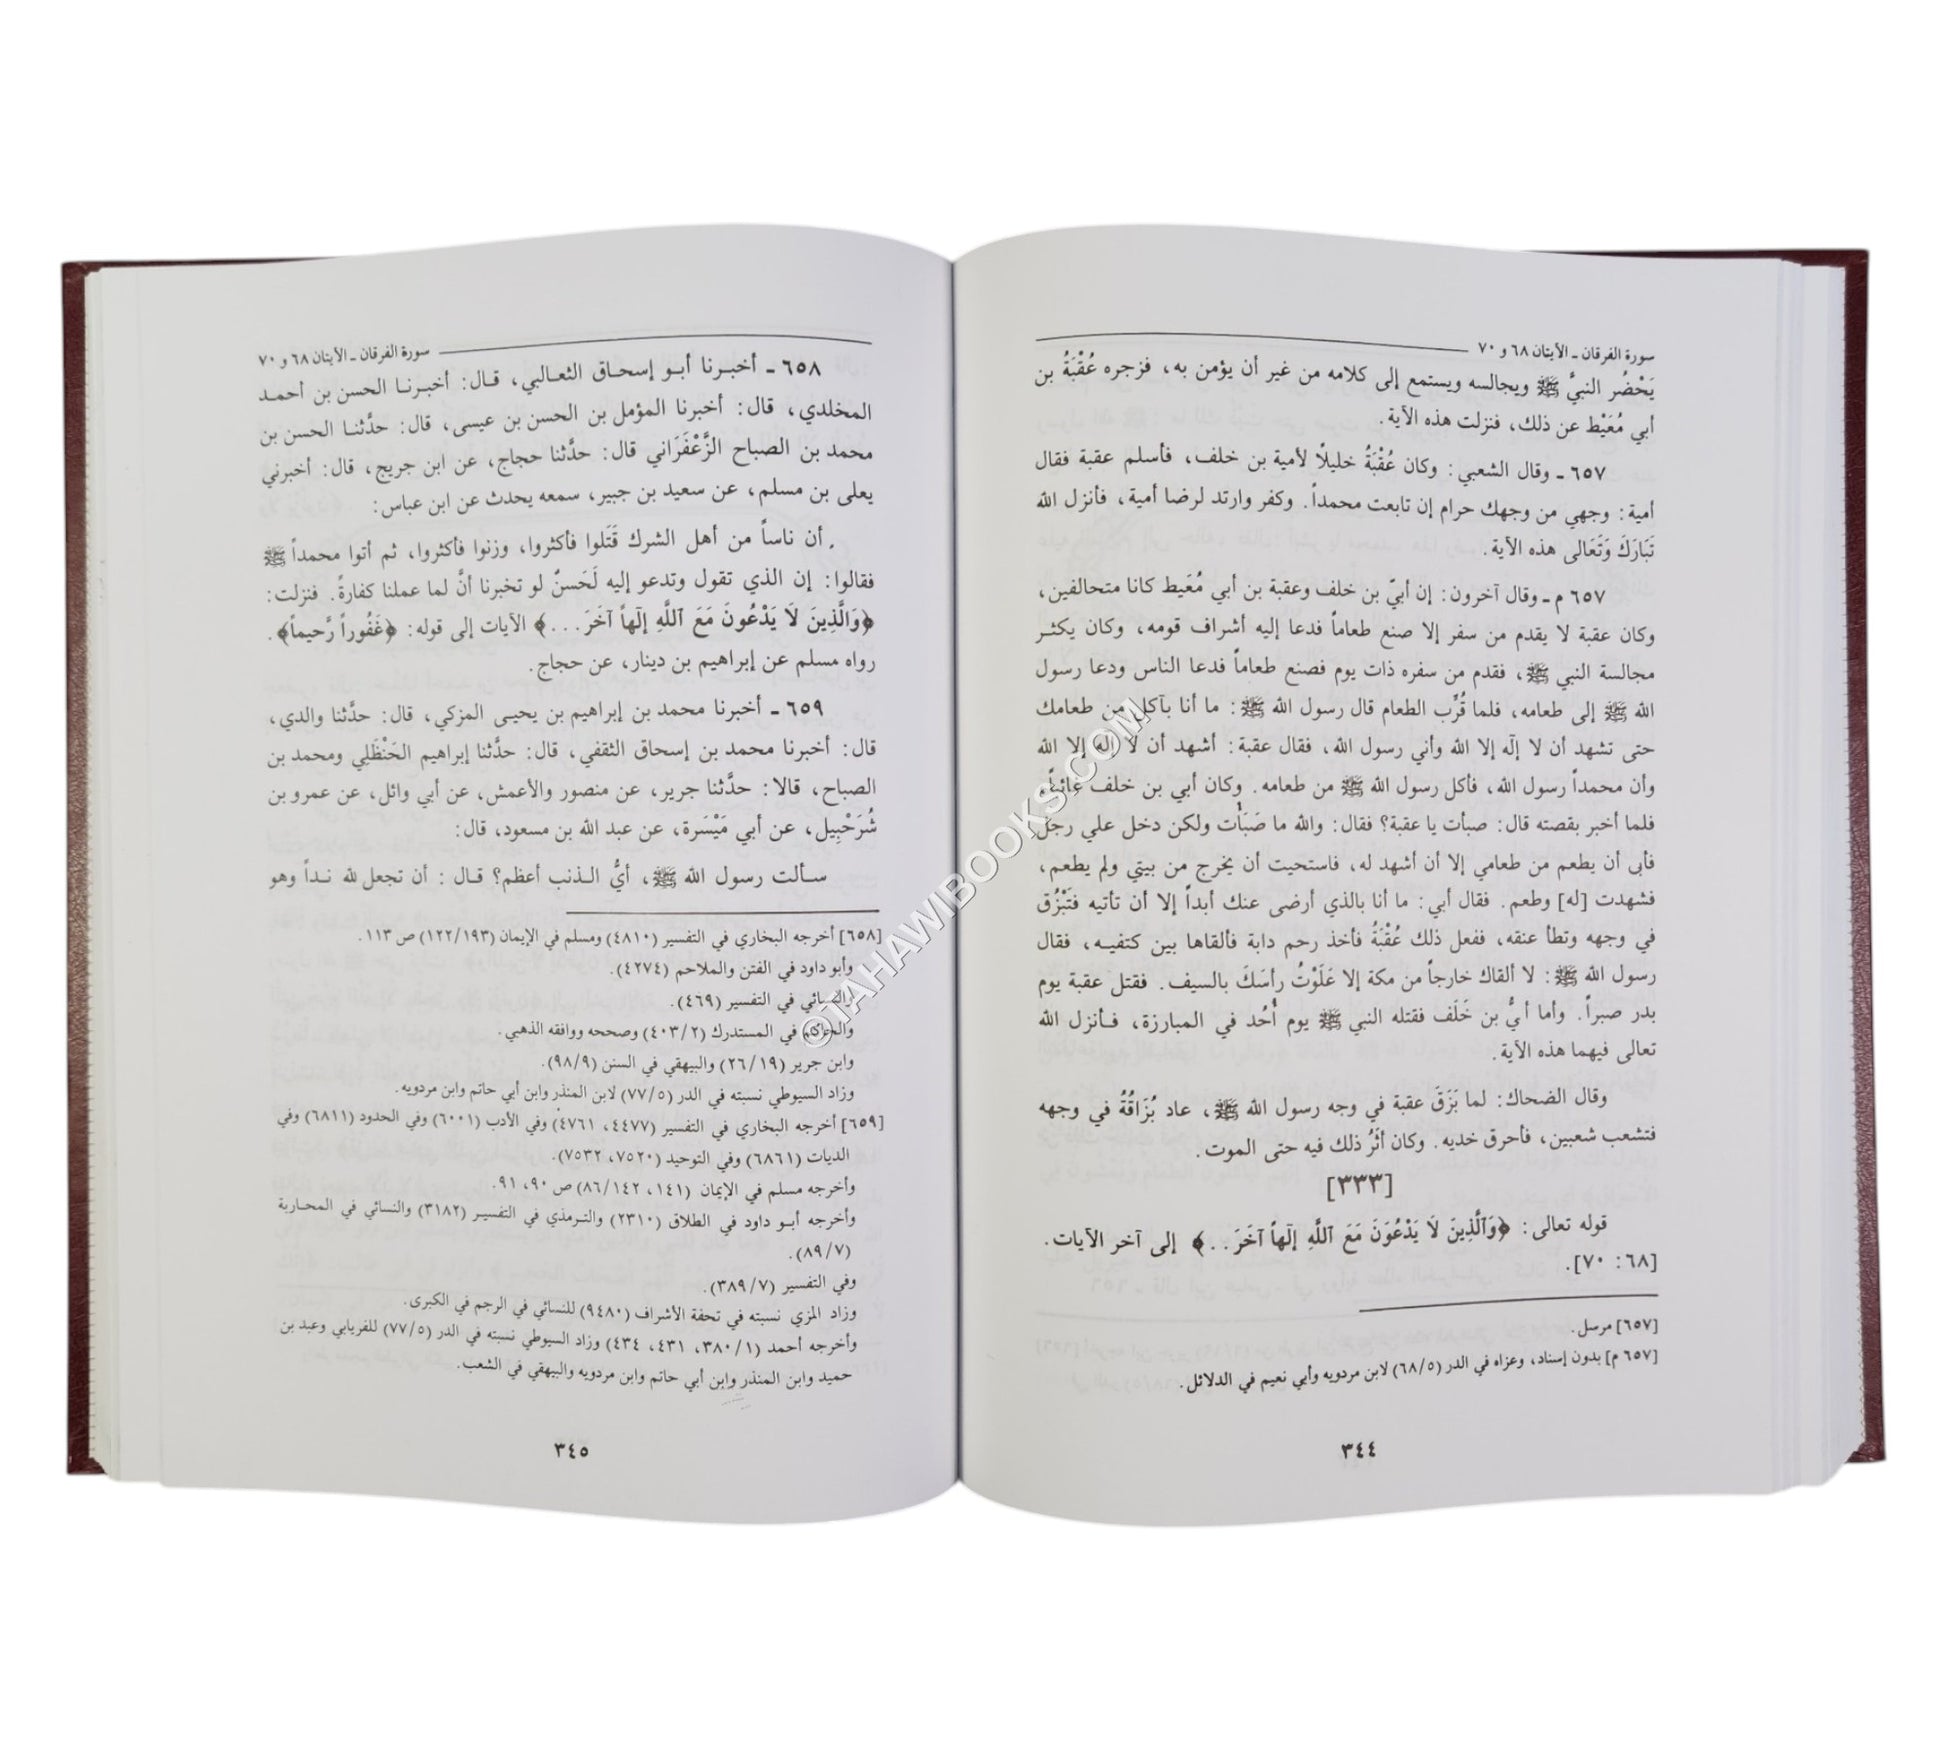 سورة الفرقان ـ الآيتان ٦٨ و ٧٠
يَحْضُر النبيَّ ﷺ ويجالسه ويستمع إلى كلامه من غير أن يؤمن به، فزجره عُقْبَةُ بن
أبي مُعَيْط عن ذلك، فنزلت هذه الآية.
٦٥٧ ـ وقال الشعبي: وكان عُقْبَةُ خليلاً لأمية بن خلف، فأسلم عقبة فقال
أمية: وجهي من وجهك حرام إن تابعت محمداً. وكفر وارتد لرضا أمية، فأنزل الله
تَبَارَكَ وَتَعَالى هذه الآية.
٦٥٧ م ـ وقال آخرون: إن أبيّ بن خلف وعقبة بن أبي مُعَيط كانا متحالفين،
وكان عقبة لا يقدم من سفر إلا صنع طعاماً فدعا إليه أشراف قومه، وكان يكثر
مجالسة النبي ﷺ، فقدم من سفره ذات يوم فصنع طعاماً فدعا الناس ودعا رسول
الله ﷺ إلى طعامه، فلما قُرِّب الطعام قال رسول الله ﷺ: ما أنا بآكل من طعامك
حتى تشهد أن لا إلٰه إلا الله وأني رسول الله، فقال عقبة: أشهد أن لا إلٰه إلا الله
وأن محمداً رسول الله، فأكل رسول الله ﷺ من طعامه. وكان أبي بن خلف غائباً،
فلما أخبر بقصته قال: صبأت يا عقبة؟ فقال: والله ما صَبَأْت ولكن دخل علي رجل
فأبى أن يطعم من طعامي إلا أن أشهد له، فاستحيت أن يخرج من بيتي ولم يطعم،
فشهدت [له] وطعم. فقال أبي: ما أنا بالذي أرضى عنك أبداً إلا أن تأتيه فتَبْزُق
في وجهه وتطأ عنقه، ففعل ذلك عُقْبَةُ فأخذ رحم دابة فألقاها بين كتفيه، فقال
رسول الله ﷺ: لا ألقاك خارجاً من مكة إلا عَلَوْتُ رأسَكَ بالسيف. فقتل عقبة يوم
بدر صبراً. وأما أبيُّ بن خَلَف فقتله النبي ﷺ يوم أُحُد في المبارزة، فأنزل الله
تعالى فيهما هذه الآية.
وقال الضحاك: لما بَزَقَ عقبة في وجه رسول الله ﷺ، عاد بُزَاقُهُ في وجهه
فتشعب شعبين، فأحرق خديه. وكان أثَرُ ذلك فيه حتى الموت.
[٣٣٣]
قوله تعالى: ﴿وَٱلَّذِينَ لَا يَدْعُونَ مَعَ ٱللَّهِ إِلٰهاً آخَرَ...﴾ إلى آخر الآيات.
[٦٨: ٧٠].
[٦٥٧] مرسل.
[٦٥٧ م] بدون إسناد، وعزاه في الدر (٦٨/٥) لابن مردويه وأبي نعيم في الدلائل.
٣٤٤
سورة الفرقان ـ الآيتان ٦٨ و ٧٠
٦٥٨ ـ أخبرنا أبو إسحاق الثعالبي، قال: أخبرنا الحسن بن أحمد
المخلدي، قال: أخبرنا المؤمل بن الحسن بن عيسى، قال: حدَّثنا الحسن بن
محمد بن الصباح الزَّعْفَرَاني قال: حدَّثنا حجاج، عن ابن جريج، قال: أخبرني
يعلى بن مسلم، عن سعيد بن جبير، سمعه يحدث عن ابن عباس:
أن ناساً من أهل الشرك قَتَلوا فأكثروا، وزنوا فأكثروا، ثم أتوا محمداً ﷺ
فقالوا: إن الذي تقول وتدعو إليه لَحَسنٌ لو تخبرنا أنَّ لما عملنا كفارةً. فنزلت:
﴿وَالَّذِينَ لَا يَدْعُونَ مَعَ ٱللَّهِ إِلٰهاً آخَرَ...﴾ الآيات إلى قوله: ﴿غَفُوراً رَّحيماً﴾.
رواه مسلم عن إبراهيم بن دينار، عن حجاج.
٦٥٩ ـ أخبرنا محمد بن إبراهيم بن يحيى المزكي، قال: حدَّثنا والدي،
قال: أخبرنا محمد بن إسحاق الثقفي، قال: حدَّثنا إبراهيم الحَنْظَلِي ومحمد بن
الصباح، قالا: حدَّثنا جرير، عن منصور والأعمش، عن أبي وائل، عن عمرو بن
شُرَحْبِيل، عن أبي مَيْسَرة، عن عبد الله بن مسعود، قال:
سألت رسول الله ﷺ، أيُّ الذنب أعظم؟ قال: أن تجعل لله نداً وهو
[٦٥٨] أخرجه البخاري في التفسير (٤٨١٠) ومسلم في الإيمان (١٢٢/١٩٣) ص ١١٣.
وأبو داود في الفتن والملاحم (٤٢٧٤).
والنسائي في التفسير (٤٦٩).
والحاكم في المستدرك (٤٠٣/٢) وصححه ووافقه الذهبي.
وابن جرير (٢٦/١٩) والبيهقي في السنن (٩٨/٩).
وزاد السيوطي نسبته في الدر (٧٧/٥) لابن المنذر وابن أبي حاتم وابن مردويه.
[٦٥٩] أخرجه البخاري في التفسير (٤٤٧٧، ٤٧٦١) وفي الأدب (٦٠٠١) وفي الحدود (٦٨١١) وفي
الديات (٦٨٦١) وفي التوحيد (٧٥٢٠، ٧٥٣٢).
وأخرجه مسلم في الإيمان (١٤١، ٨٦/١٤٢) ص ٩٠، ٩١.
وأخرجه أبو داود في الطلاق (٢٣١٠) والترمذي في التفسير (٣١٨٢) والنسائي في المحاربة
(٨٩/٧).
وفي التفسير (٣٨٩/٧).
وزاد المزي نسبته في تحفة الأشراف (٩٤٨٠) للنسائي في الرجم في الكبرى.
وأخرجه أحمد (٣٨٠/١، ٤٣١، ٤٣٤) وزاد السيوطي نسبته في الدر (٧٧/٥) للفريابي وعبد بن
حميد وابن المنذر وابن أبي حاتم وابن مردويه والبيهقي في الشعب.
٣٤٥
©TAHAWIBOOKS.COM